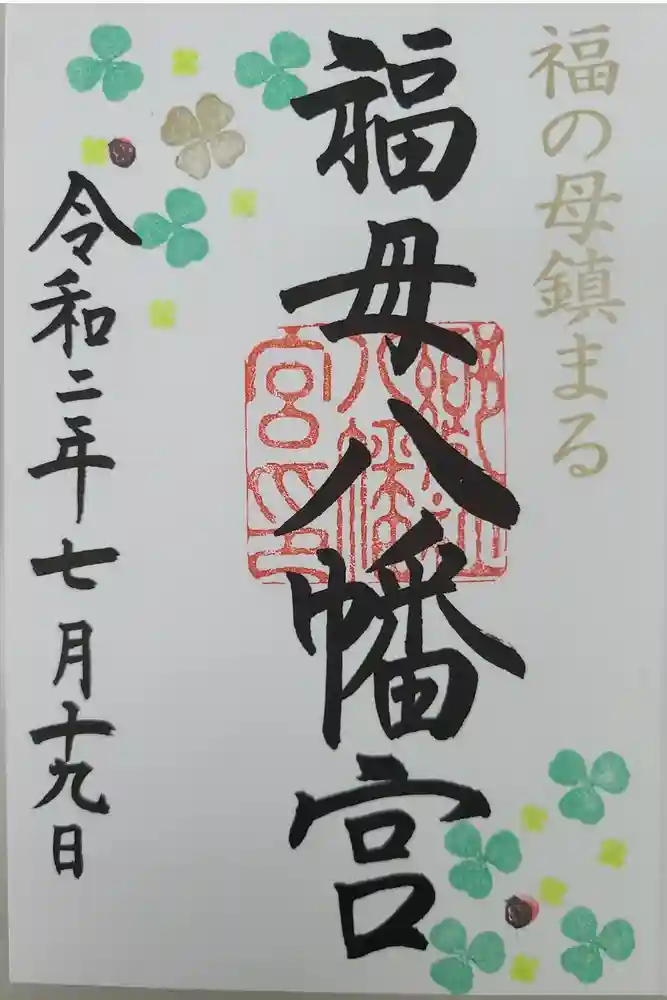 福の母鎮まる
福母八幡宮
郷社
八幡
宮印
令和二年七月十九日